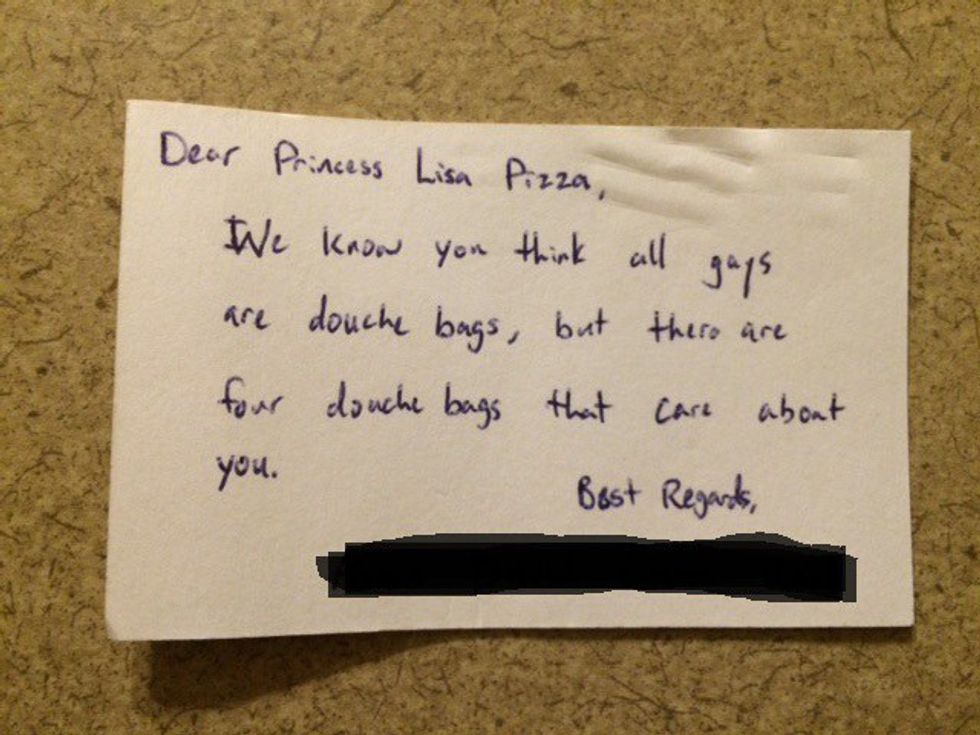 Dear Princess Lisa Pizza,
We know you think all guys
are douche bags, but there are
four douche bags that care about
you.
Best Regards,